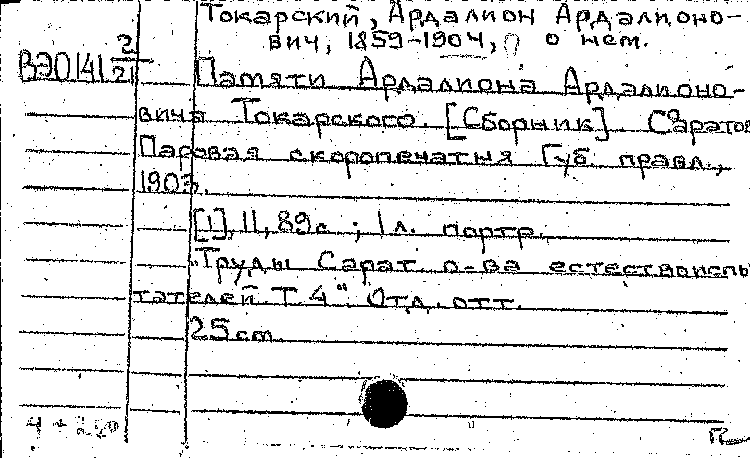 Токарский, Ардалион Ардалионо-
вич, 1859-1904, о нем.
ВЭ0141 2/21
Памяти Ардалиона Ардалионо-
вича Токарского. [Сборник]. Саратов
Паровая скоропечатня Губ. правл.,
1903.
[1], 11, 89с ; 1 л. портр.
"Труды Сарат. о-ва естествоиспы
тателей. Т 4". Отд. отт.
25 cm